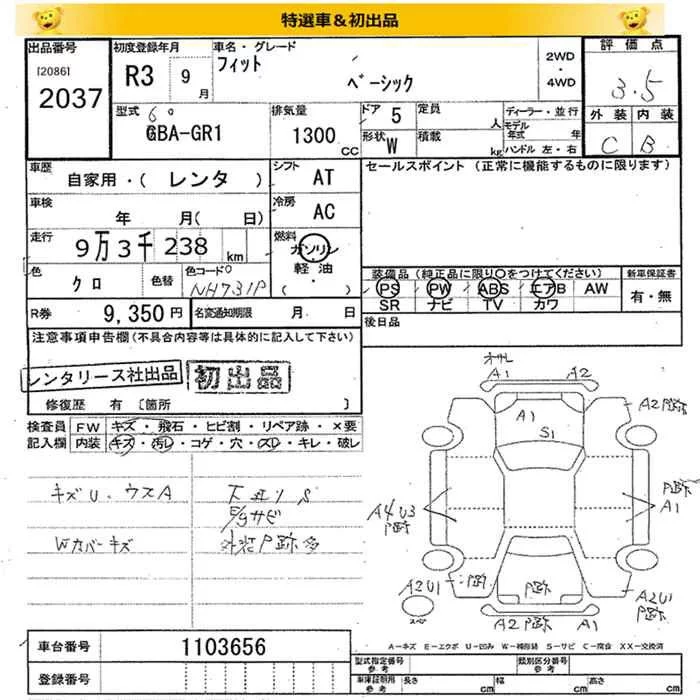 特選車&初出品
出品番号
[2086]
2037
初度登録年月
R3 9月
車名・グレード
フィット
ベーシック
2WD
・
4WD
評価点
3.5
外装 内装
C B
型式 6º
6BA-GR1
排気量
1300cc
ドア 5
形状 W
定員 人
積載 kg
ディーラー・並行
モデル年式 年
ハンドル 左・右
車歴
自家用・( レンタ )
シフト AT
車検
年 月( 日)
冷房 AC
走行
9万3千238km
燃料
ガソリン
軽油・
( )
色 クロ
色替
色コードº
NH731P
R券 9,350円
名変通知期限 月 日
セールスポイント (正常に機能するものに限ります)
装備品(純正品に限り○をつけてください)
PS PW ABS エアB AW
SR ナビ TV カワ
新車保証書
有・無
後日品
注意事項申告欄(不具合内容等は具体的に記入して下さい)
レンタリース社出品
初出品
修復歴 有 [箇所 ]
検査員記入欄
FW キズ・飛石・ヒビ割・リペア跡・×要
内装 キズ・汚レ・コゲ・穴・スレ・キレ・破レ
キズU、ウスA
下廻りS
サビ
Wカバーキズ
外装P跡多
A1 A2
A1
S1
A2 P跡
A4 U3
P跡
P跡
A1
A2U1
P跡
P跡
A2U1
P跡
A2 P跡 A1
A-キズ E-エクボ U-凹み W-補修跡 S-サビ C-腐食 XX-交換済
車台番号 1103656
登録番号
型式指定番号
参考
類別区分番号
参考
車庫証明用
参考
長さ cm
幅 cm
高さ cm